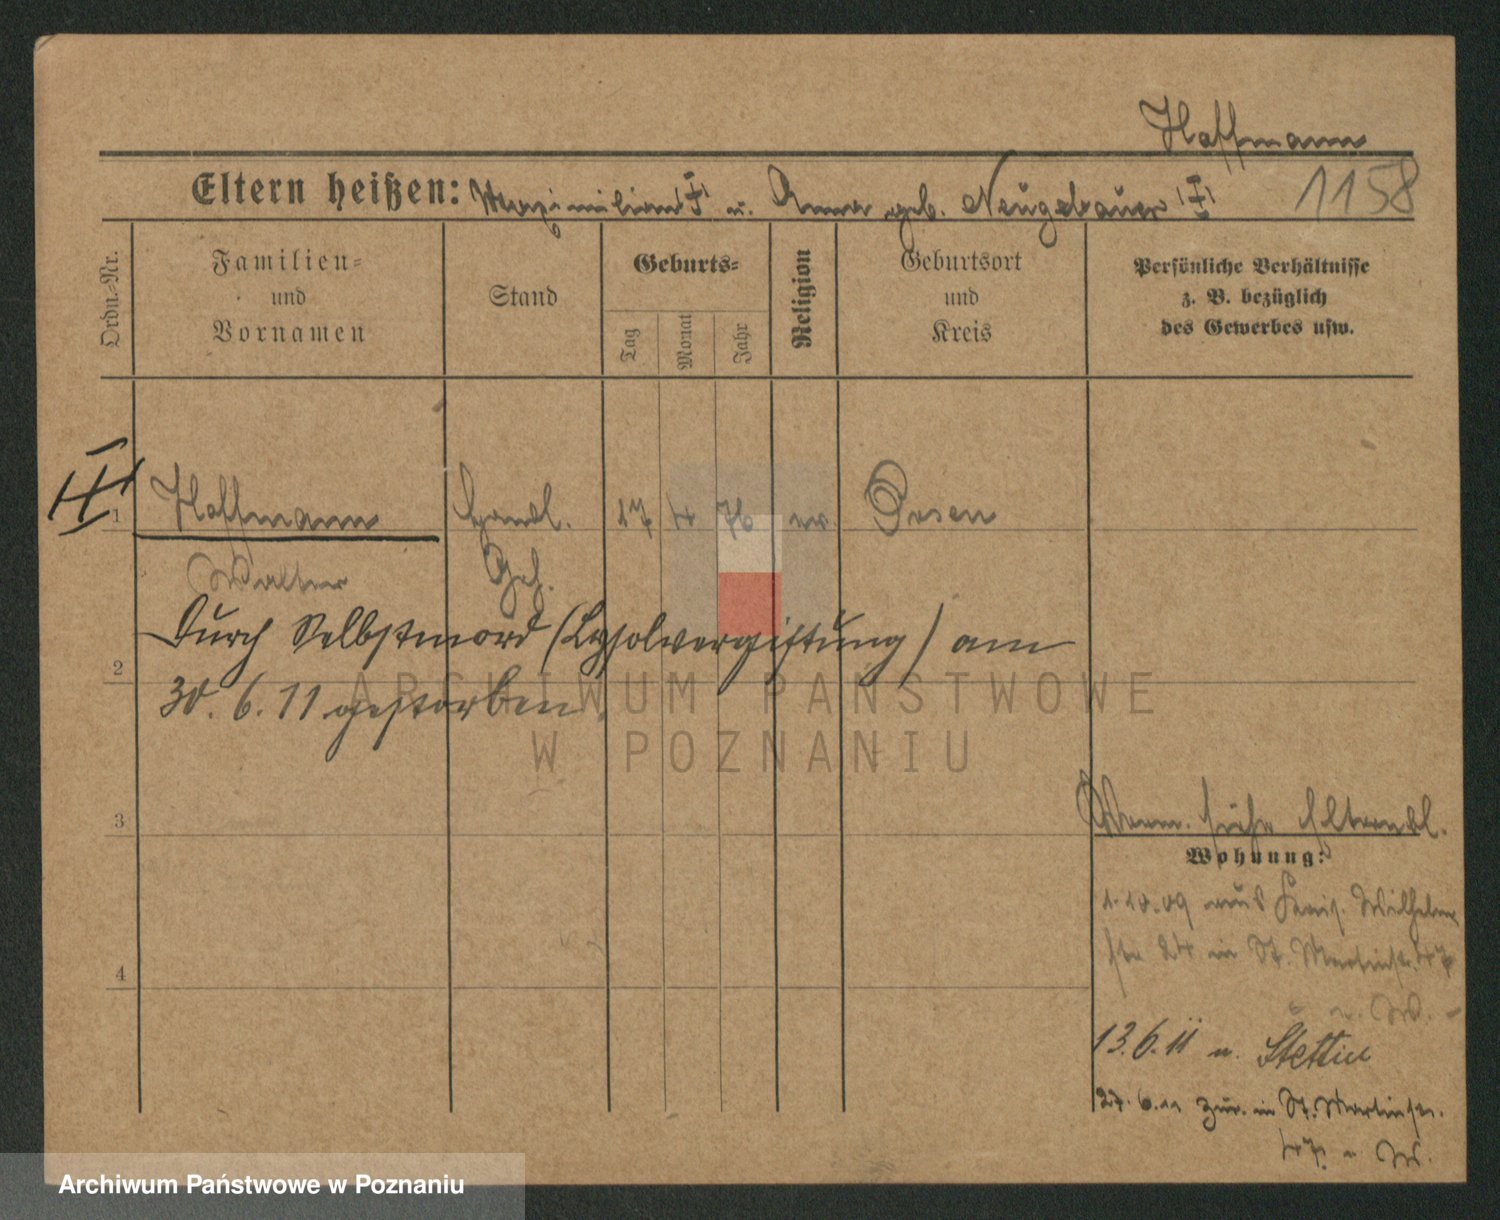 Hoffmann
Eltern heißen: Maximilian u. Anna geb. Neugebauer
1158
Ordn.-Nr.
Familien-
und
Vornamen
Stand
Geburts-
Tag
Monat
Jahr
Religion
Geburtsort
und
Kreis
Persönliche Verhältnisse
z. B. bezüglich
des Gewerbes usw.
1
Hoffmann Handl. 17 4 76 ev. Posen
Walter Geh.
Durch Selbstmord (Lysolvergiftung) am
2
30. 6. 11 gestorben.
3
Verm. siehe
Wohnung:
1.10.09 aus Wilhelm
str 24 in St. Martinstr. 47
u. W.
4
13.6.11 n. Stettin
27. 6. 11 zur. in St. Martinstr.
47. W.
ARCHIWUM PAŃSTWOWE
W POZNANIU
Archiwum Państwowe w Poznaniu